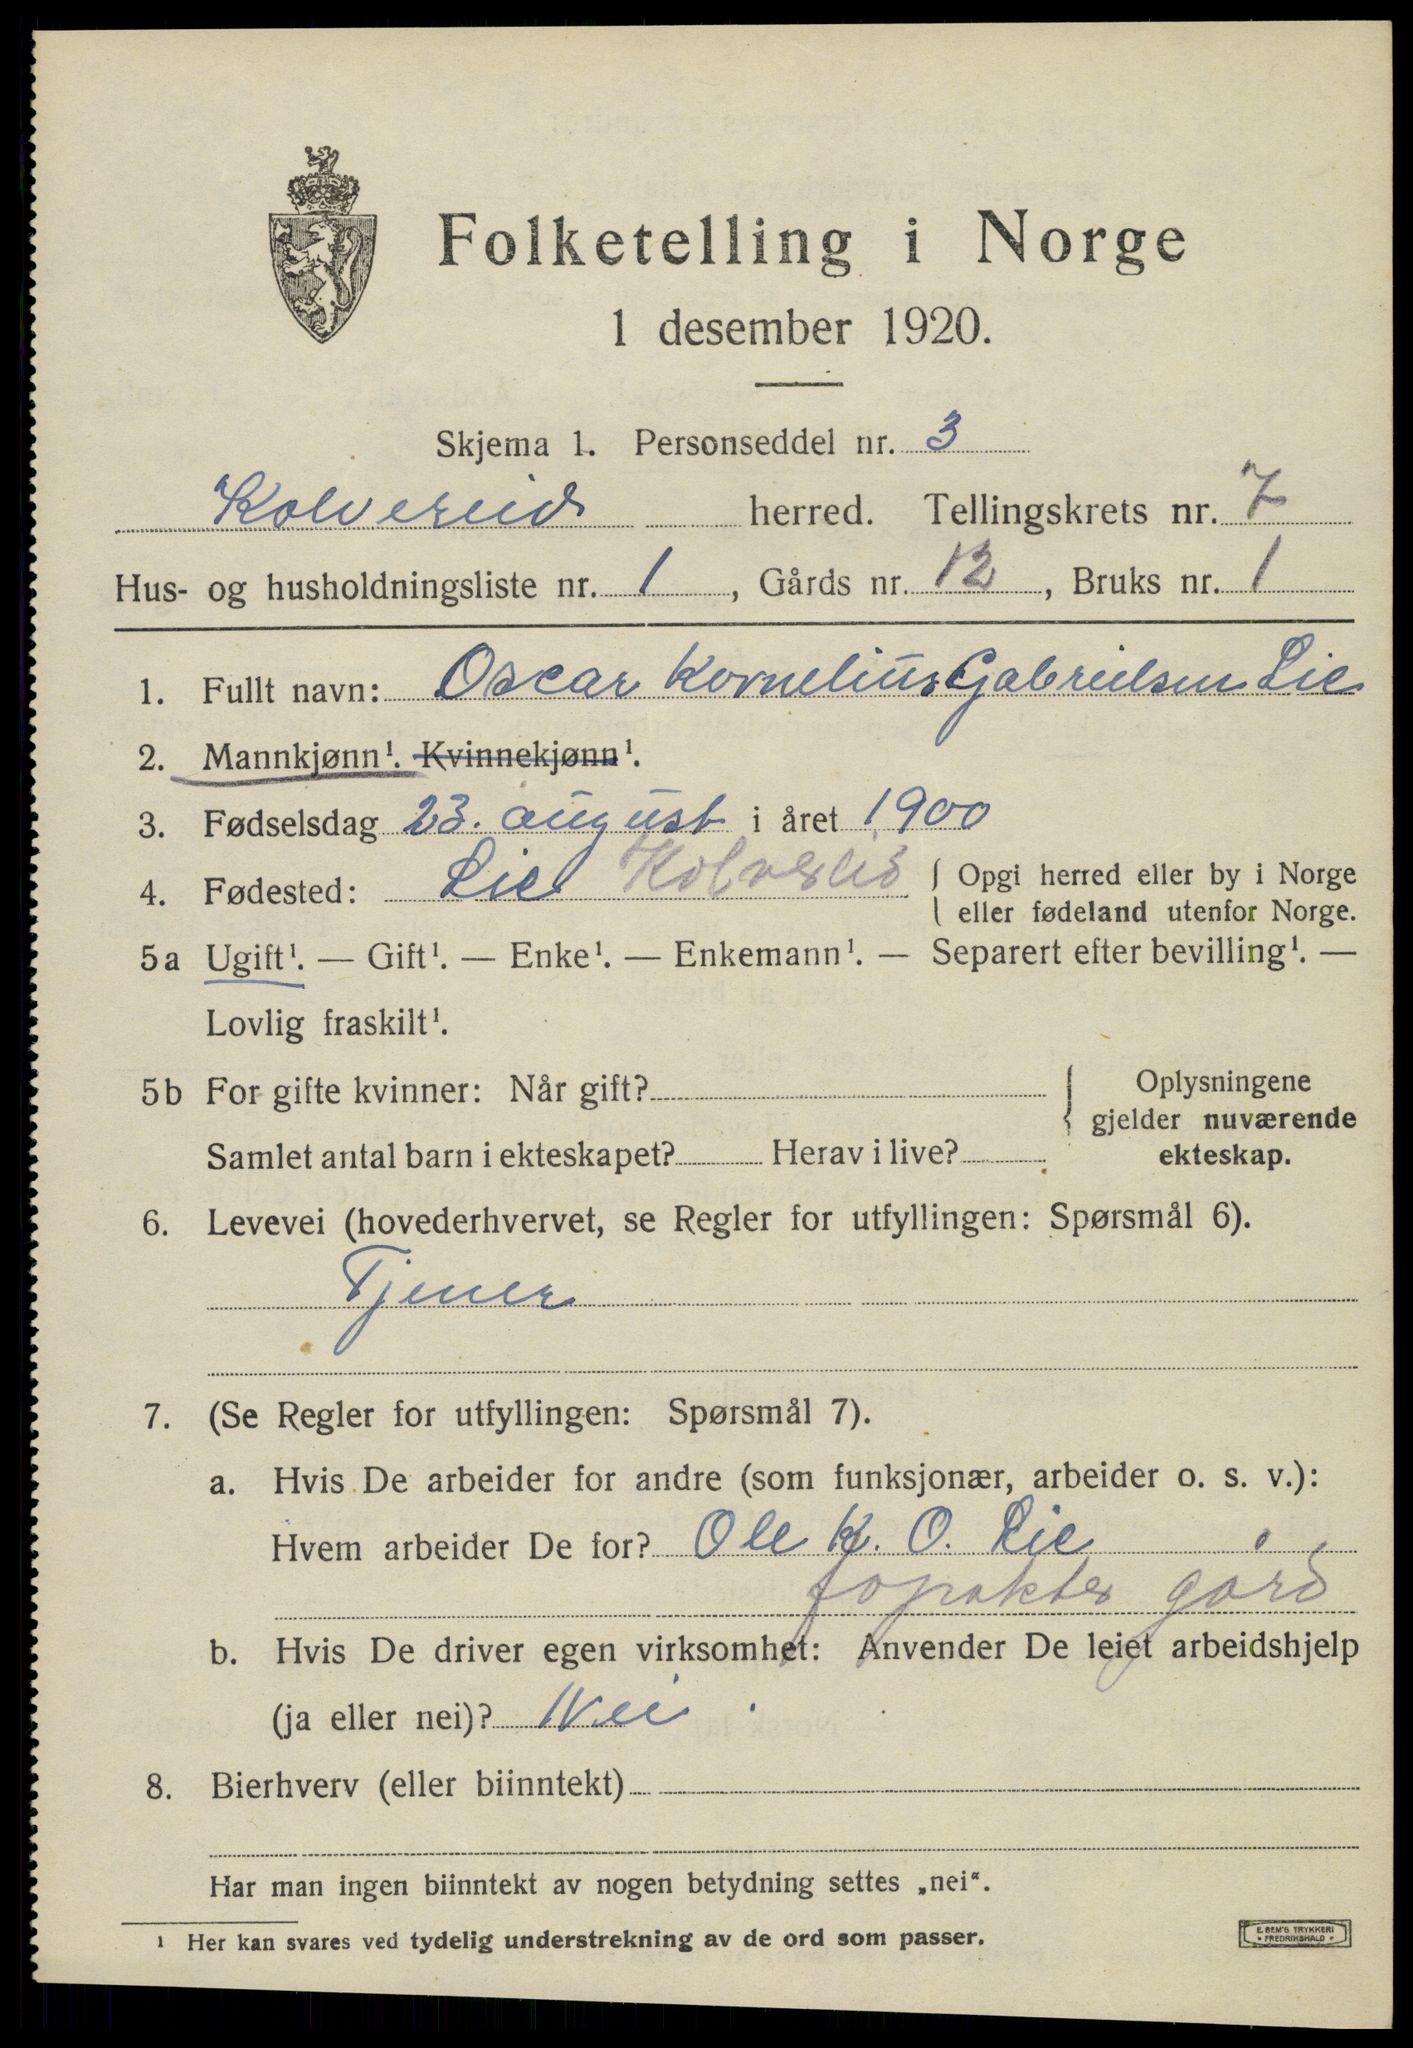 Folketelling i Norge
1 desember 1920.
Skjema 1. Personseddel nr. 3
Kolvereid herred. Tellingskrets nr. 7
Hus- og husholdningsliste nr. 1, Gårds nr. 12, Bruks nr. 1
1. Fullt navn: Oscar Kornelius Gabrielsen Lie
2. Mannkjønn¹. Kvinnekjønn¹.
3. Fødselsdag 23. august i året 1900
4. Fødested: Lie Kolvereid { Opgi herred eller by i Norge
eller fødeland utenfor Norge.
5a Ugift¹. — Gift¹. — Enke¹. — Enkemann¹. — Separert efter bevilling¹. —
Lovlig fraskilt¹.
5b For gifte kvinner: Når gift? { Oplysningene
gjelder nuværende
Samlet antal barn i ekteskapet? Herav i live? ekteskap.
6. Levevei (hovederhvervet, se Regler for utfyllingen: Spørsmål 6).
Tjener
7. (Se Regler for utfyllingen: Spørsmål 7).
a. Hvis De arbeider for andre (som funksjonær, arbeider o. s. v.):
Hvem arbeider De for? Ole K. O. Lie
gård
b. Hvis De driver egen virksomhet: Anvender De leiet arbeidshjelp
(ja eller nei)? Nei
8. Bierhverv (eller biinntekt)
Har man ingen biinntekt av nogen betydning settes „nei“.
¹ Her kan svares ved tydelig understrekning av de ord som passer.
E. SEM'S TRYKKERI
FREDRIKSHALD